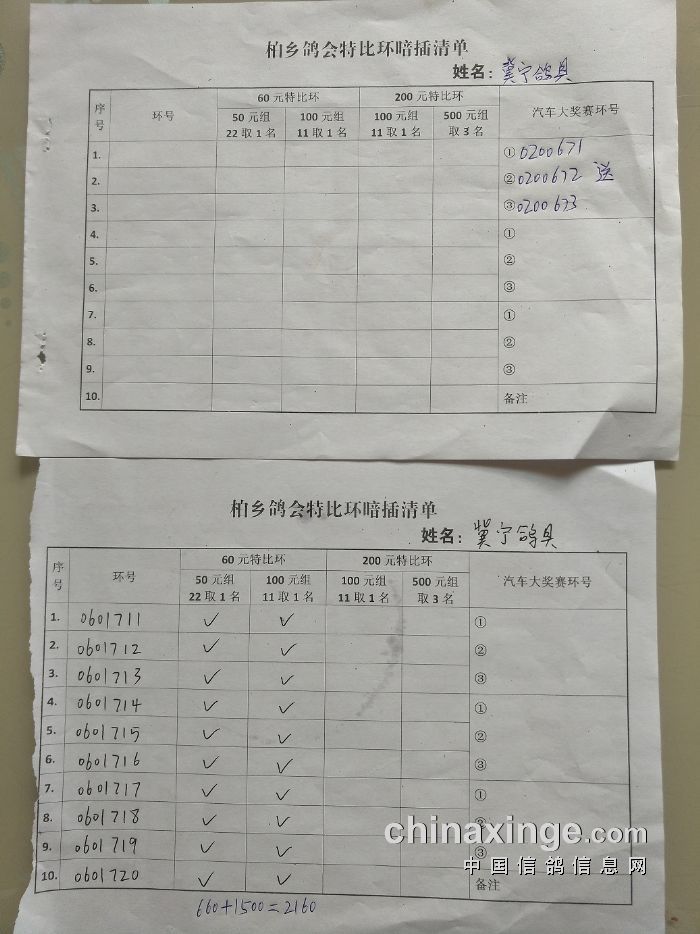 柏乡鸽会特比环暗插清单
姓名：冀宁鸽具
序号 环号 60元特比环 200元特比环 汽车大奖赛环号
50元组 100元组 100元组 500元组
22取1名 11取1名 11取1名 取3名
1. ①0200671
2. ②0200672 送
3. ③0200673
4. ①
5. ②
6. ③
7. ①
8. ②
9. ③
10. 备注
柏乡鸽会特比环暗插清单
姓名：冀宁鸽具
序号 环号 60元特比环 200元特比环 汽车大奖赛环号
50元组 100元组 100元组 500元组
22取1名 11取1名 11取1名 取3名
1. 0601711 ✓ ✓ ①
2. 0601712 ✓ ✓ ②
3. 0601713 ✓ ✓ ③
4. 0601714 ✓ ✓ ①
5. 0601715 ✓ ✓ ②
6. 0601716 ✓ ✓ ③
7. 0601717 ✓ ✓ ①
8. 0601718 ✓ ✓ ②
9. 0601719 ✓ ✓ ③
10. 0601720 ✓ ✓ 备注
660+1500=2160
chinaxinge.com
中国信鸽信息网